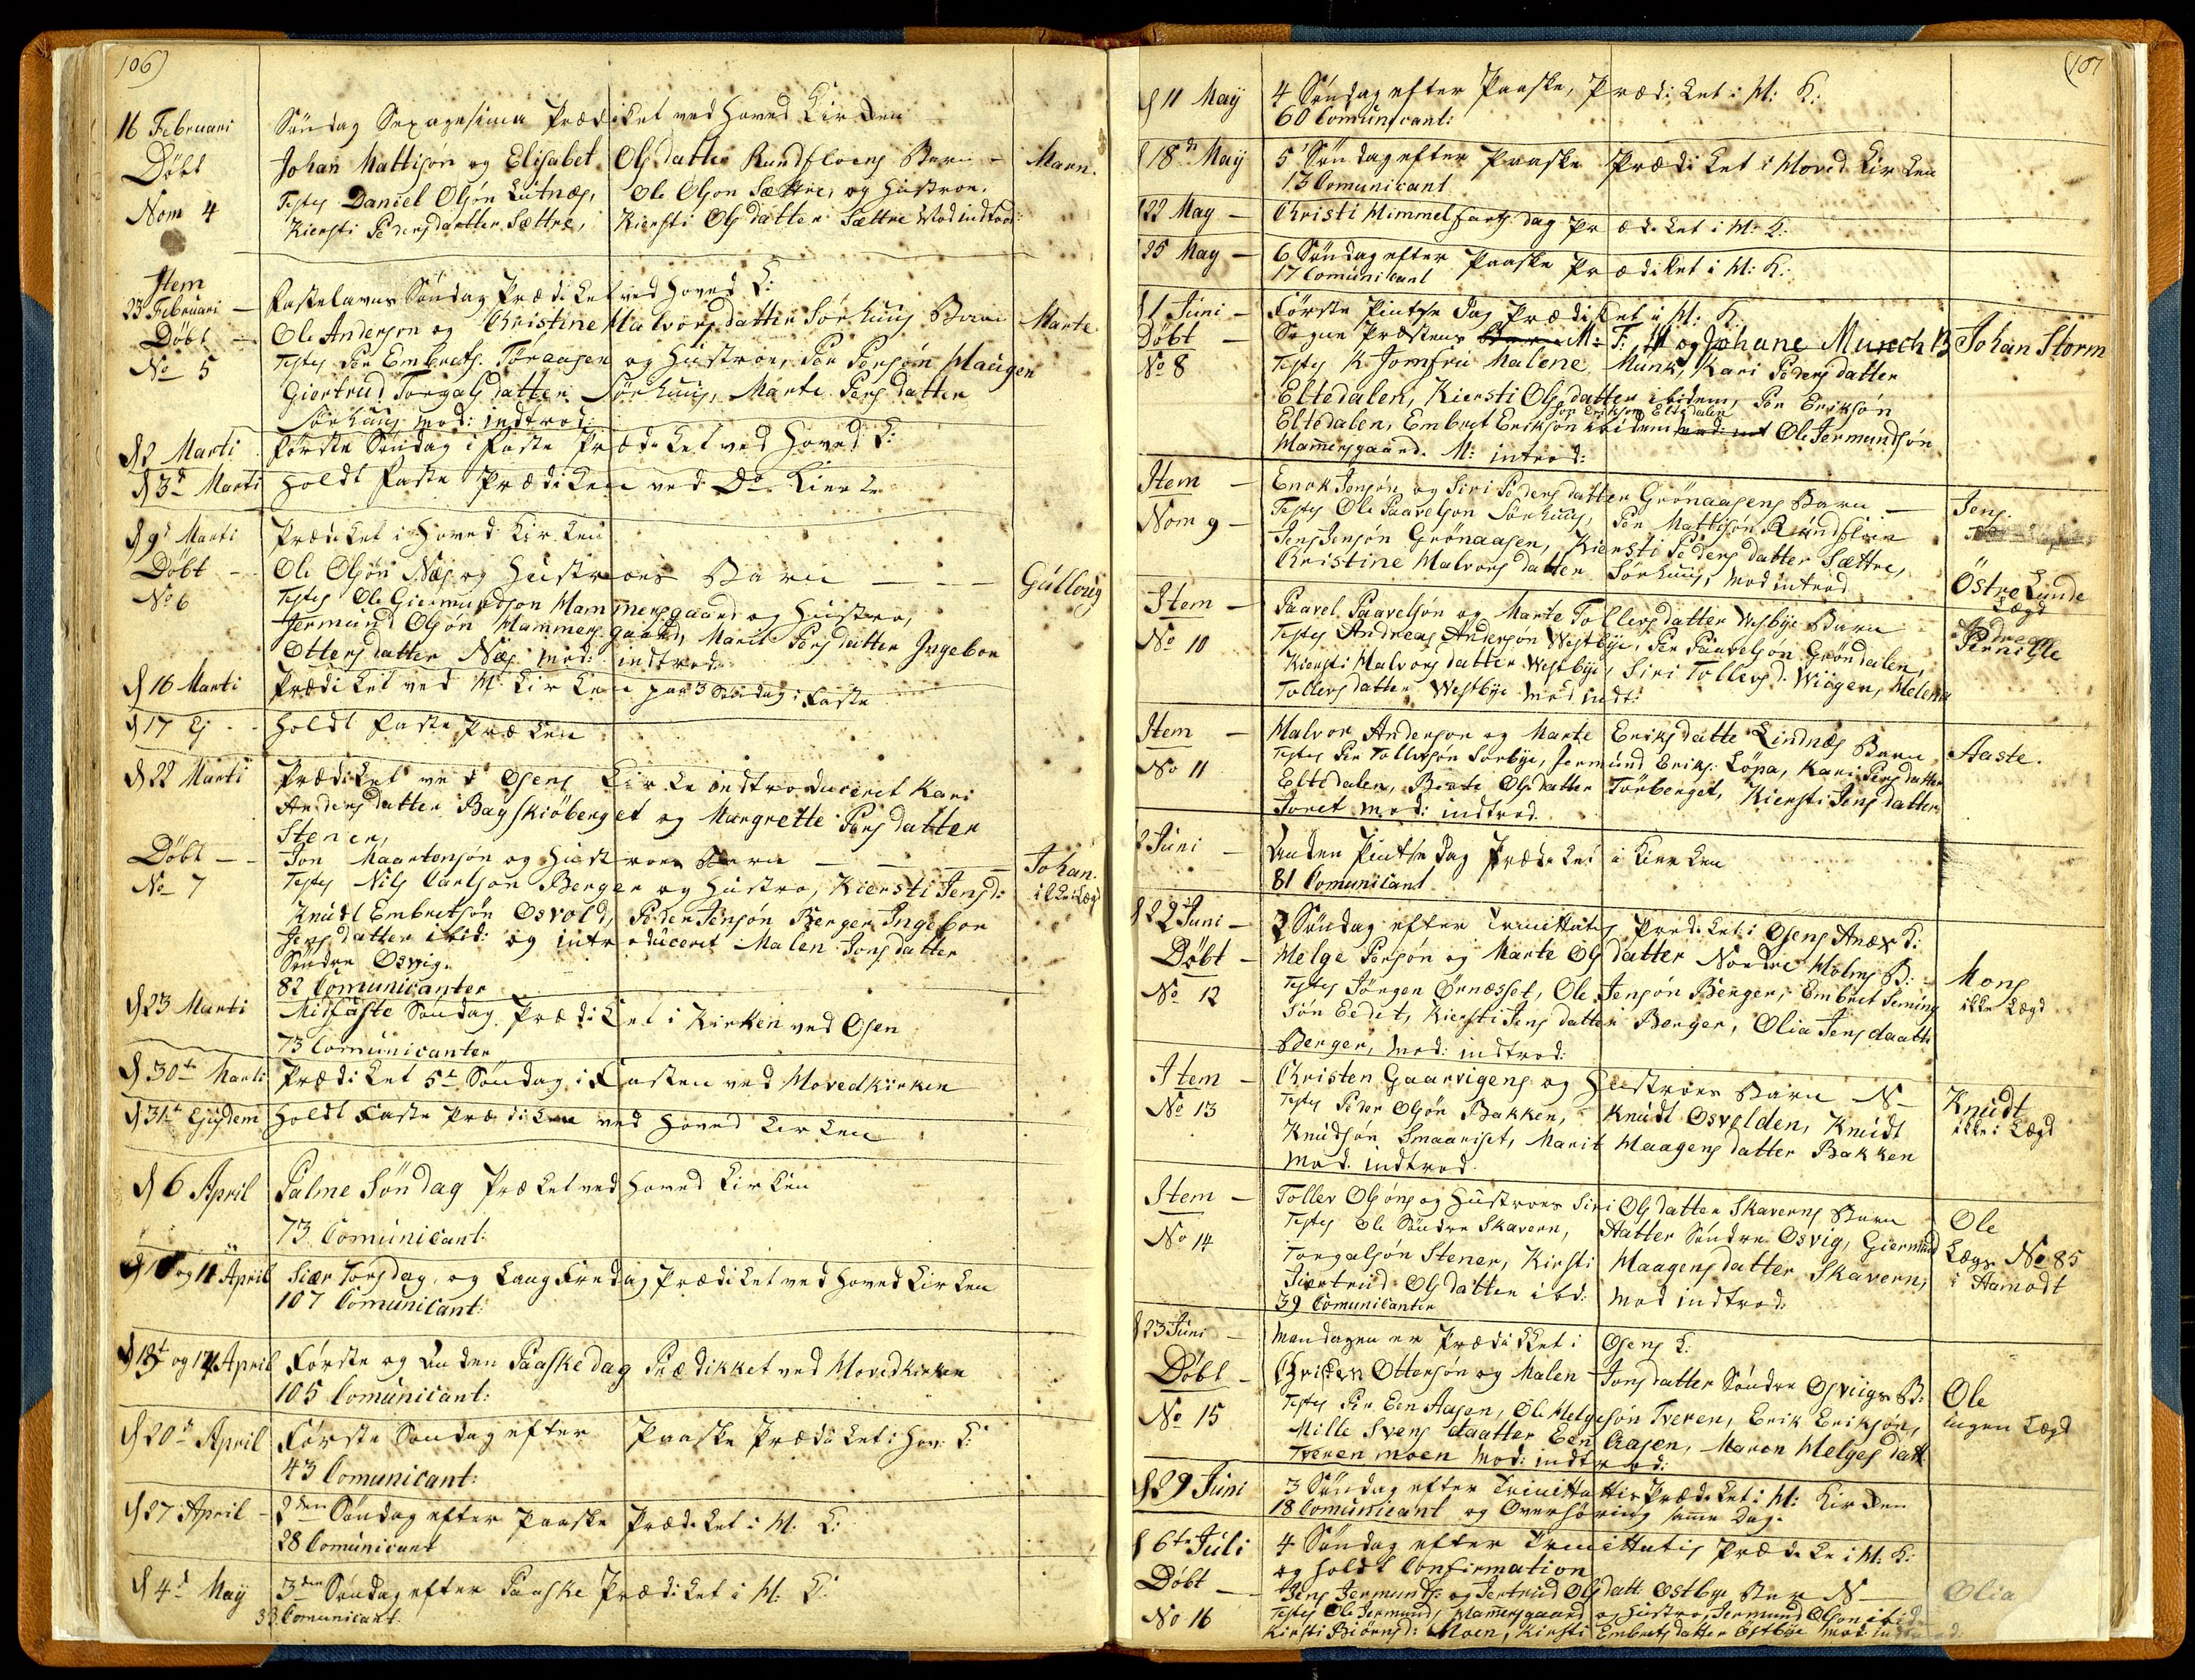 106)
16 Februari Søndag Sexagesima Prædiket ved Hoved Kirken
Döbt Johan Mattisön og Elisabet Olsdatter Rundfloens Barn - Maren.
Nom 4 Testes Daniel Olsön Lutnæs, Ole Olson Sættre, og Hustroe,
Kiersti Pedersdaatter Sættre, Kiersti Olsdatter Sættre Mod indtrod:
Item
23 Februari - Fastelavns Søndag Prædiket ved Hoved K:
Döbt - Ole Anderson og Christine Halvorsdatter Sörhuus Barn Marte
No 5 Testes Per Embrets. Töraasen og Hustroe, Per Persön Haugen
Giertrud Torgalsdatter Sörhuus, Marte Persdatter
Sörhuus mod: indtrod:
d 2 Marti Förste Søndag i Faste Prædiket ved Hoved K:
d 3d Marti Holdt Faste Prædiken ved Do Kirke
d 9d Marti Prædiket i Hoved Kirken
Döbt - Ole Olsön Næs og Hustroes Barn - - - Gulloug
No 6 Testes Ole Giermundson Hammersgaard og Hustro,
Jermund Olsön Hammersgaard, Marit Persdatter Ingebor
Ottersdatter Næs. mod: indtrod:
d 16 Marti Prædiket ved H. Kirken paa 3 Søndag i Faste
d 17 Ej - Holdt Faste Præken
d 22 Marti Prædiket ved Osens Kirke indtroduceret Kari
Andersdatter Bagskiöberget og Margrette Persdatter
Stener,
Döbt - - Jon Maartensön og Hustroes Barn - - - Johan.
No 7 Testes Nils Carlson Berger og Hustro, Kiersti Jensd: ikke Læg
Knudt Embretsön Osvold, Peder Jensön Berger, Ingebor
Jensdatter ibid: og introduceret Malen Jonsdatter
Søndre Osvig.
82 Comunicanter
d 23 Marti Midfaste Søndag Prædiket i Kirken ved Osen
73 Comunicanter
d 30te Marti Prædiket 5te Søndag i Fasten ved Hovedkirken
d 31te Ejusdem Holdt Faste Prædiken ved Hoved Kirken
d 6 April Palme Söndag Præket ved Hoved Kirken
73 Comunicant:
d 10 og 11 April Siær Torsdag, og Lang Fredag Prædiket ved Hoved Kirken
107 Comunicant:
d 13t og 14 April Förste og Anden Paaske dag Prædikket ved Hovedkirken
105 Comunicant:
d 20d April Förste Søndag efter Paaske Prædiket i Hov: K:
43 Comunicant:
d 27 April - 2den Søndag efter Paaske Prædiket i H. K:
28 Comunicant
d 4d May 3den Søndag efter Paaske Prædiket i H: K:
33 Comunicant.
(107
d 11 May 4 Søndag efter Paaske, Prædiket i H: K:
60 Comunicant:
d 18de May 5 Søndag efter Paaske Prædiket i Hoved Kirken
13 Comunicant
d 22 May - Christi Himmelfarts dag Prædiket i H: K:
d 25 May - 6 Søndag efter Paaske Prædiket i H: K:
17 Comunicant
d 1 Juni - Förste Pintse dag Prædiket i H: K
Döbt - Sogne Præstens M: F: og Johane Munch B Johan Storm
No 8 Testes K Jomfru Malene Munk, Kari Pedersdatter
Eltedalen, Kiersti Olsdatter ibidem, Per Eriksön
Jon Erikson Eltedalen
Eltedalen, Embret Eriksön ibidem Ole Jermundsön
Hamersgaard. M: introd:
Item - Enok Jensön og Siri Pedersdatter Grönaasens Barn - Jens.
Nom 9 - Testes Ole Paavelson Sörhuus, Per Mattisön Rundfloen
Jens Jensön Grönaasen, Kiersti Pedersdatter Sættre,
Christine Halvorsdatter Sörhuus, mod introd
Östre Lunde Lægd
Item - Paavel Paavelsön og Marte Tollevsdatter Westbye Barn Andreas Pernille
No 10 Testes Andreas Anderson Westbye, Per Paavelsön Gröndalen,
Kiersti Halvorsdatter Westbye, Siri Tollevsd. Wiigen, Helena
Tollevsdatter Westbye mod indt:
Item - Halvor Anderson og Marte Eriksdatte Lindnæs Barn Aaste.
No 11 Testes Per Tollevsön Sorbye, Jermund Eriks. Löpa, Kari Persdatter
Eltedalen, Berte Olsdatter Törberget, Kiersti Jensdatter
Joret mod: indtrod
d 2 Juni - Anden Pintse dag Prædiket i Kirken
81 Comunicant
d 22 Juni - 2 Søndag efter Trinittatis Prediket i Osens Anex K:
Döbt - Helge Persön og Marte Olsdatter Nordre Holms B: - Mons
No 12 Testes Jörgen Örnæsset, Ole Jensön Berger, Embret Seming ikke Lægd
sön Eedet, Kiersti Jensdatter Berger, Olia Jensdaatt
Berger, mod: indtrod:
Item - Christen Gaarvigens og Hustroes Barn N- Knudt
No 13 Testes Peder Olsön Bakken, Knudt Osvolden, Knudt ikke i Lægd
Knudsön Smaariset, Marit Haagensdatter Bakken
mod. indtrod.
Item - Tollev Olsöns og Hustroes Siri Olsdatter Skaverns Barn Ole
No 14 Testes Ole Søndre Skavern, Hatter Søndre Osvig, Giermund Lægs No 85
Torgalsön Stener, Kirsti Haagensdatter Skavern, i Aamodt
Jiertrud Olsdatter ibd: mod indtrod:
39 Comunicanter
d 23 Juni - Mandagen er Prædikket i Osens K:
Döbt - Christen Ottersön og Malen Jonsdatter Søndre Osviigs B: Ole
No 15 Testes Per Een Aasen, Ole Helgesön Tveren, Erik Eriksön, ingen Lægd
Milte Svens daatter Een Aasen, Maren Helges datt
Tveren moen Mod: indtrod:
d 29 Juni 3 Søndag efter Trinittattis Prædiket i H: Kirken
18 Comunicant og Overhöring same dag.
d 6te Juli 4 Søndag efter Trinittatis Prædike i H: K:
og holdt Confirmation
Döbt - Jens Jermunds: og Jertrud Olsdatt Ostbye Barn N Olia
No 16 Testes Ole Jermunds Hamersgaard og Hustro, Jermund Olson ibid:
Kirsti Biörnsd: Moen, Kirsti Embretsdatter Östbye mod: indtrod: